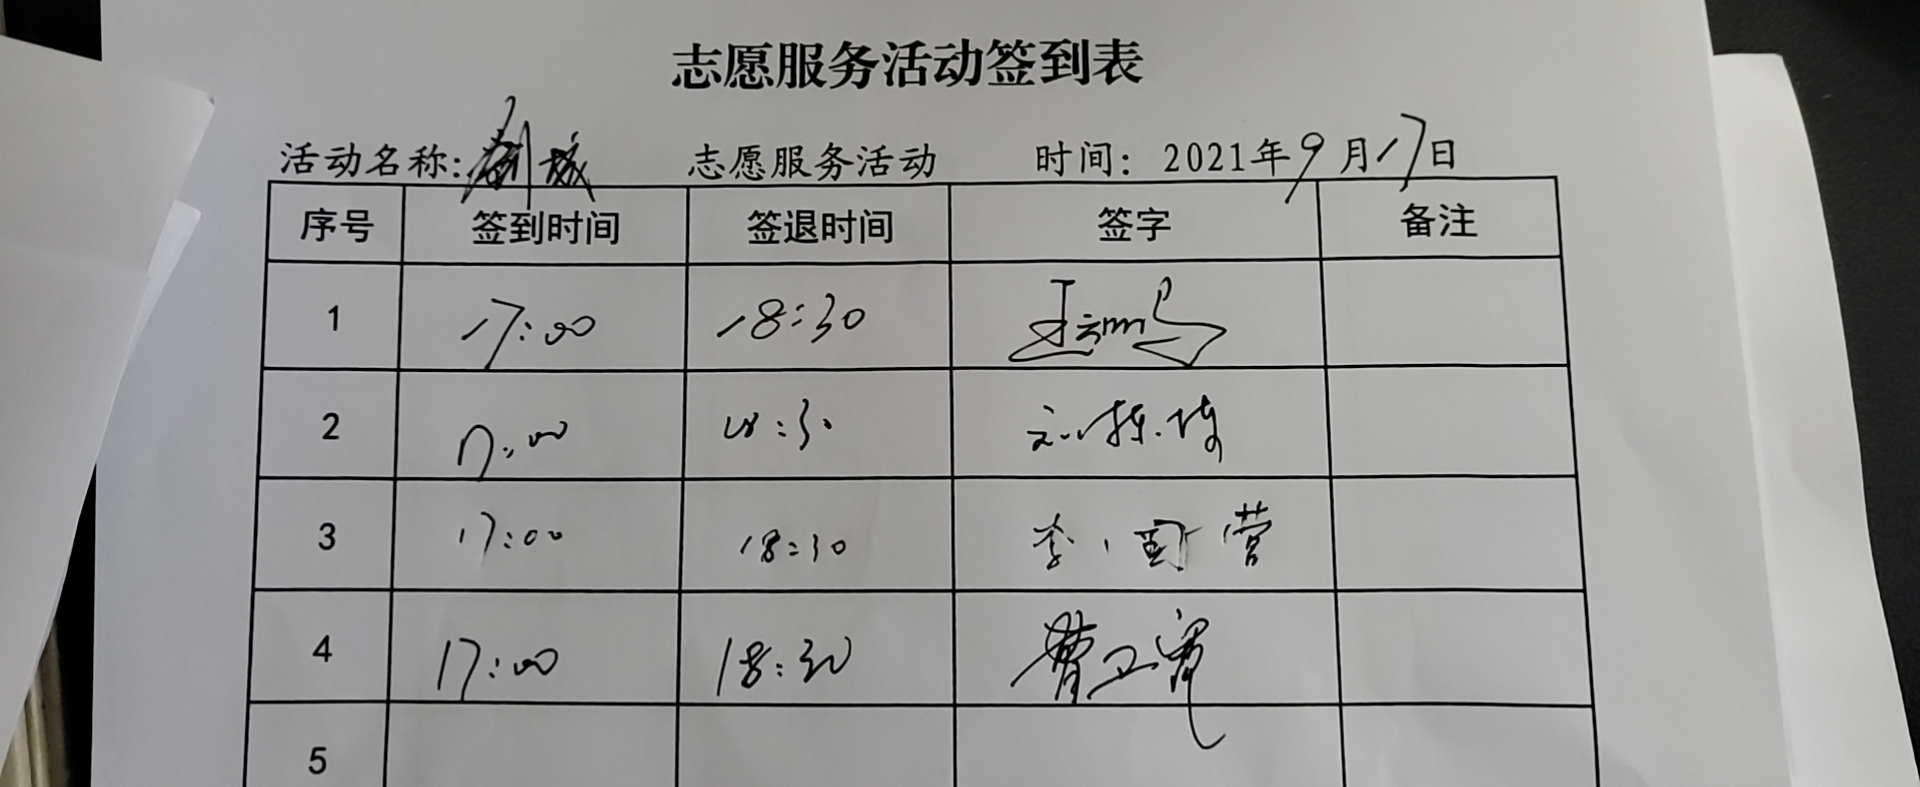 志愿服务活动签到表
活动名称: 创城 志愿服务活动 时间: 2021年9月17日
序号 签到时间 签退时间 签字 备注
1 17:00 18:30
2 17:00 18:30 刘栋琦
3 17:00 18:30 李国营
4 17:00 18:30 曹卫霄
5